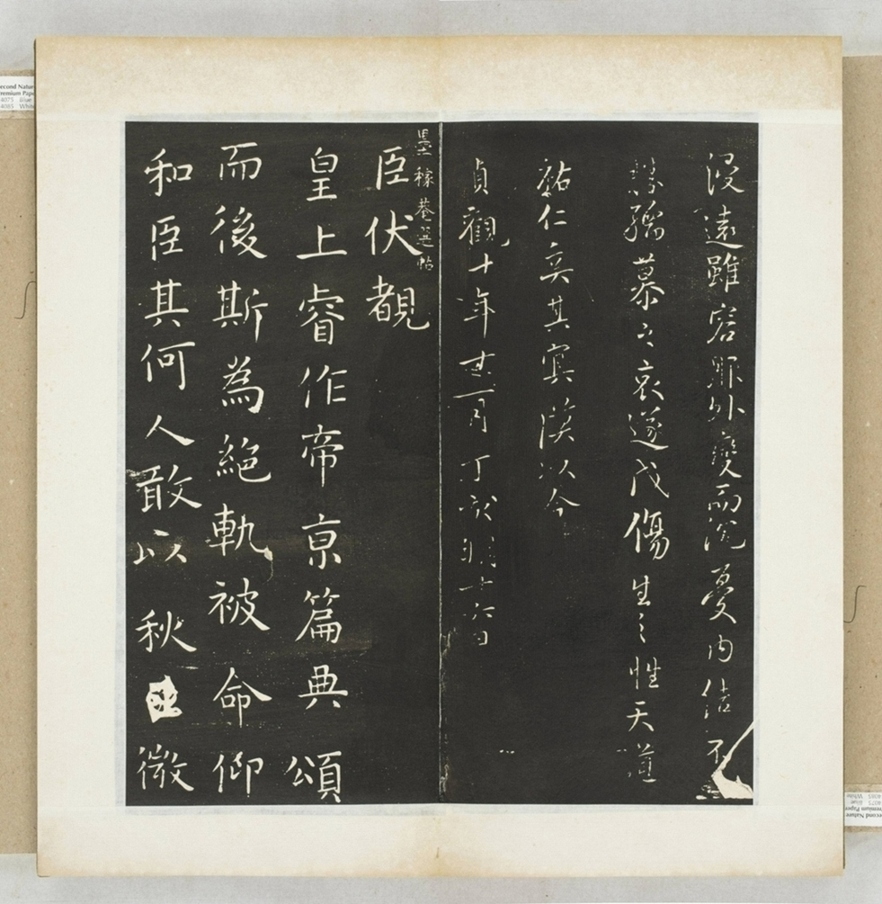 浸遠雖容服外變而沉憂內結不
孺慕之哀遂戊傷生之性天道
祐仁奚其冥漠以今
貞觀十年十一月丁亥朔十六日
墨稼菴選帖
臣伏覩
皇上睿作帝京篇典頌
而後斯為絕軌被命仰
和臣其何人敢以秋微